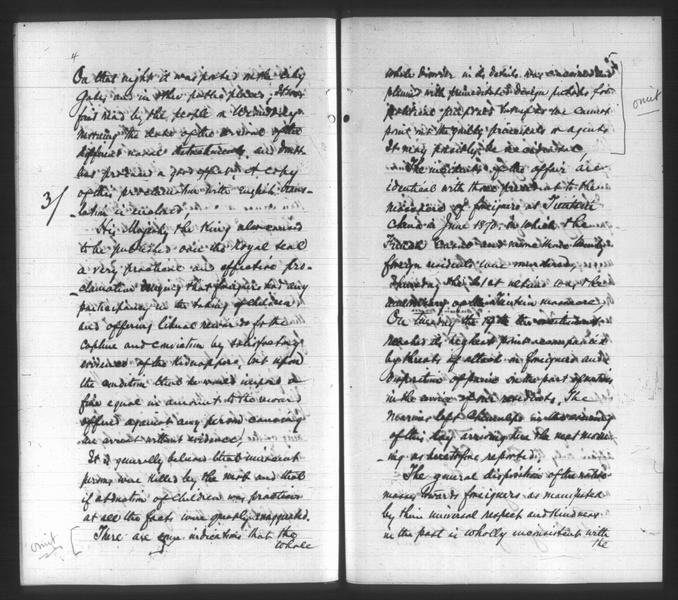 4
On that night it was posted on the City
Gates and in other public places, it was
first read by the people on Wednesday
morning the
and doubt
has produced a good effect. A copy
of this proclamation with English trans-
3/
lation is enclosed,
His Majesty the King also caused
to be published over the royal seal
a very practical and effective pro-
clamation denying that foreigners had any
participancy in the taking of children
and offering liberal rewards for the
capture and conviction by satisfactory
evidence of the kidnappers, but upon
the condition that he would impose a
fine equal in amount to the reward
offered against any person causing
an arrest without evidence,
It is generally believed that innocent
persons were killed by the mob and that
if abduction of children was practiced
at all the facts were greatly exaggerated.
omit
There are some indications that the
whole
5
whole disorder in its details was conceived and
planned with premeditated design perhaps for
political purposes though we cannot
point out the guilty principals or agents
omit
It may possibly be
The incidents of the affair are
identical with those precedent to the
massacre of foreigners at Tientsin
China in June 1870, in which the
French Consul and nine
foreign residents were murdered,
the 21st ultimo was the
anniversary of the Tientsin massacre,
On the 19th the excitement
reached its highest point accompanied
by threats of attack on foreigners and
desperation of panic on the part of natives
in the service of our residents. The
Marines left Chemulpo in the evening
of this day arriving here the next morn-
ing as heretofore reported,
The general disposition of the native
masses towards foreigners as manifested
by their universal respect and kindness
in the past is wholly inconsistent with
the